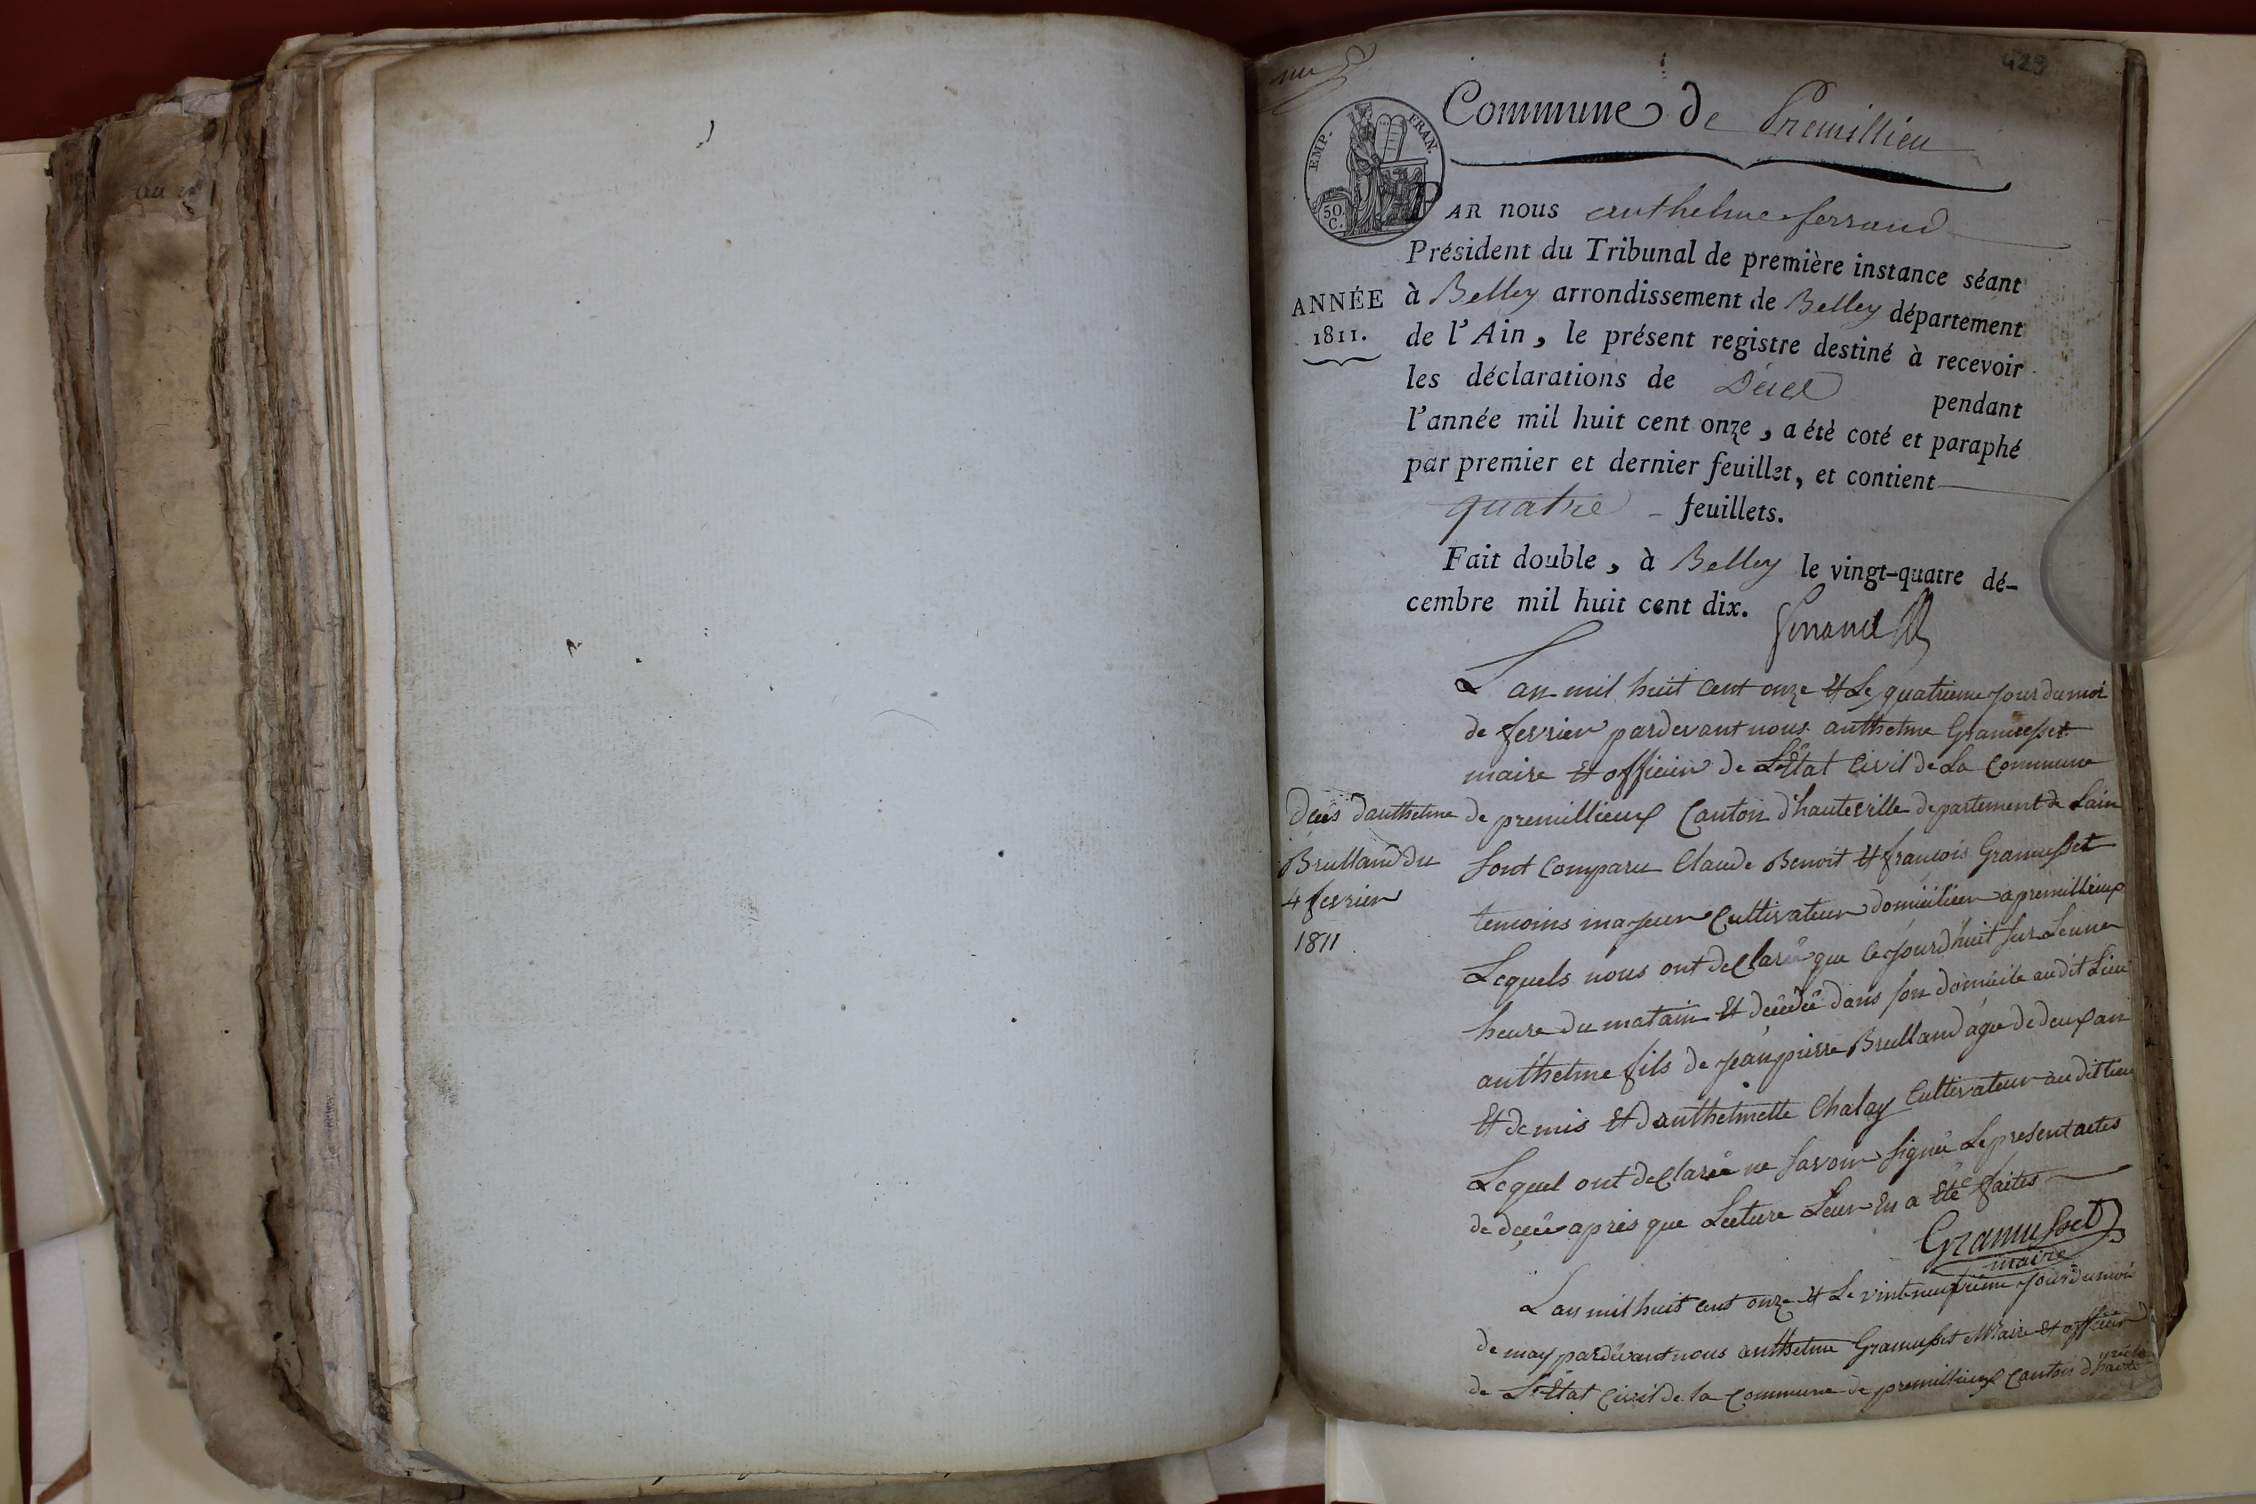 429
Commune de Premillieu
EMP. FRAN.
50. C.
PAR nous anthelme ferrand
Président du Tribunal de première instance séant
à Belley arrondissement de Belley département
ANNÉE
1811.
de l'Ain, le présent registre destiné à recevoir
les déclarations de Décè pendant
l'année mil huit cent onze, a été coté et paraphé
par premier et dernier feuillet, et contient
quatre feuillets.
Fait double, à Belley le vingt-quatre dé-
cembre mil huit cent dix.
ferrand
L an mil huit cent onze Et Le quatrieme jour du moi
de fevrier pardevant nous anthelme Gramusset
maire Et officier de L'Etat Civil de La Commune
de premillieux Canton d'hauteville departement de Lain
Sont Comparu Claude Benoit Et françois Gramusset
temoins majeur Cultivateur domicilier a premillieux
Lequels nous ont declaré que cejourd'huit sur Leune
heure du matain Et décédé dans son domicile audit Lieu
anthelme fils de jean pierre Brulland agé de deux an
Et demis Et danthelmette Chalay Cultivateur audit lieu
Lequel ont declaré ne savoir signé Le present actes
de décé après que Lecture Leur En a Eté faites
Gramusset
maire
Décés danthelme
Brulland du
4 fevrier
1811
L an mil huit cent onze Et Le vintneufvieme jour du moi
de may pardevant nous anthelme Gramusset Maire Et officier
de L'Etat Civil de la Commune de premillieux Canton d'haute
ville